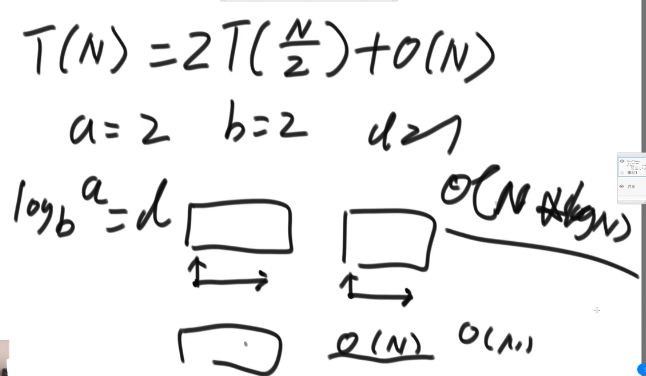 T(N) = 2T(N/2) + O(N)
a = 2 b = 2 d = 1
log_b a = d O(N * log N)
O(N) O(N)